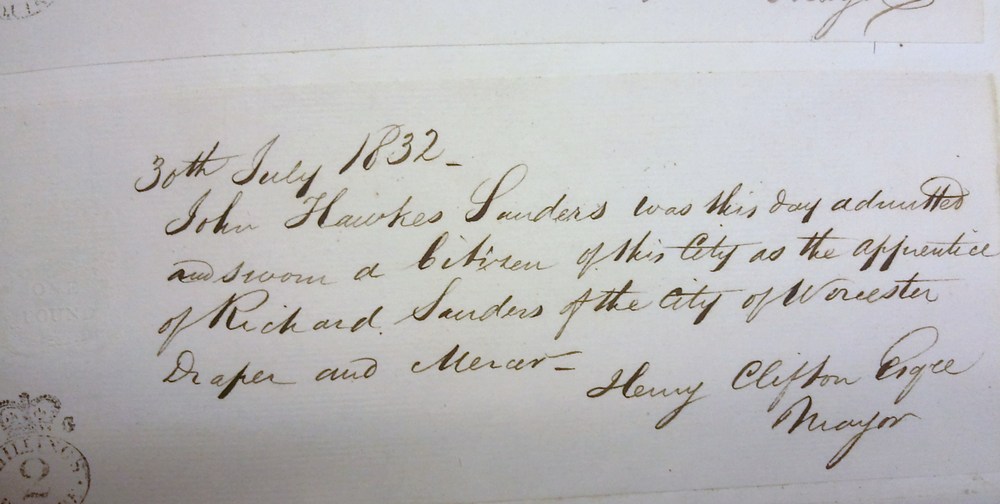 Mayor
30th July 1832 –
John Hawkes Sanders was this day admitted
and sworn a Citizen of this City as the apprentice
of Richard Sanders of the City of Worcester
Draper and Mercer –
Henry Clifton Esqre
Mayor
ONE
POUND
SHILLINGS
2